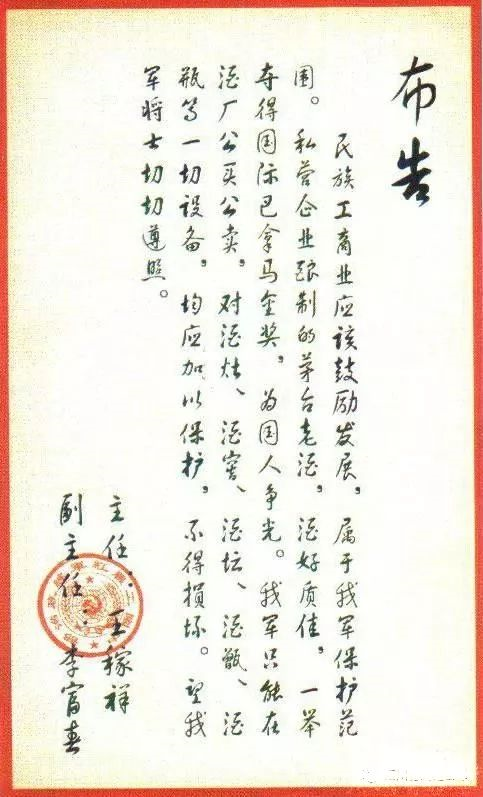 布告
民族工商业应该鼓励发展，属于我军保护范
围。私营企业酿制的茅台老酒，酒好质佳，一举
夺得国际巴拿马金奖，为国人争光。我军只能在
酒厂公买公卖，对酒灶、酒窖、酒坛、酒甑、酒
瓶等一切设备，均应加以保护，不得損坏。望我
军将士切切遵照。
主任：王稼祥
副主任：李富春